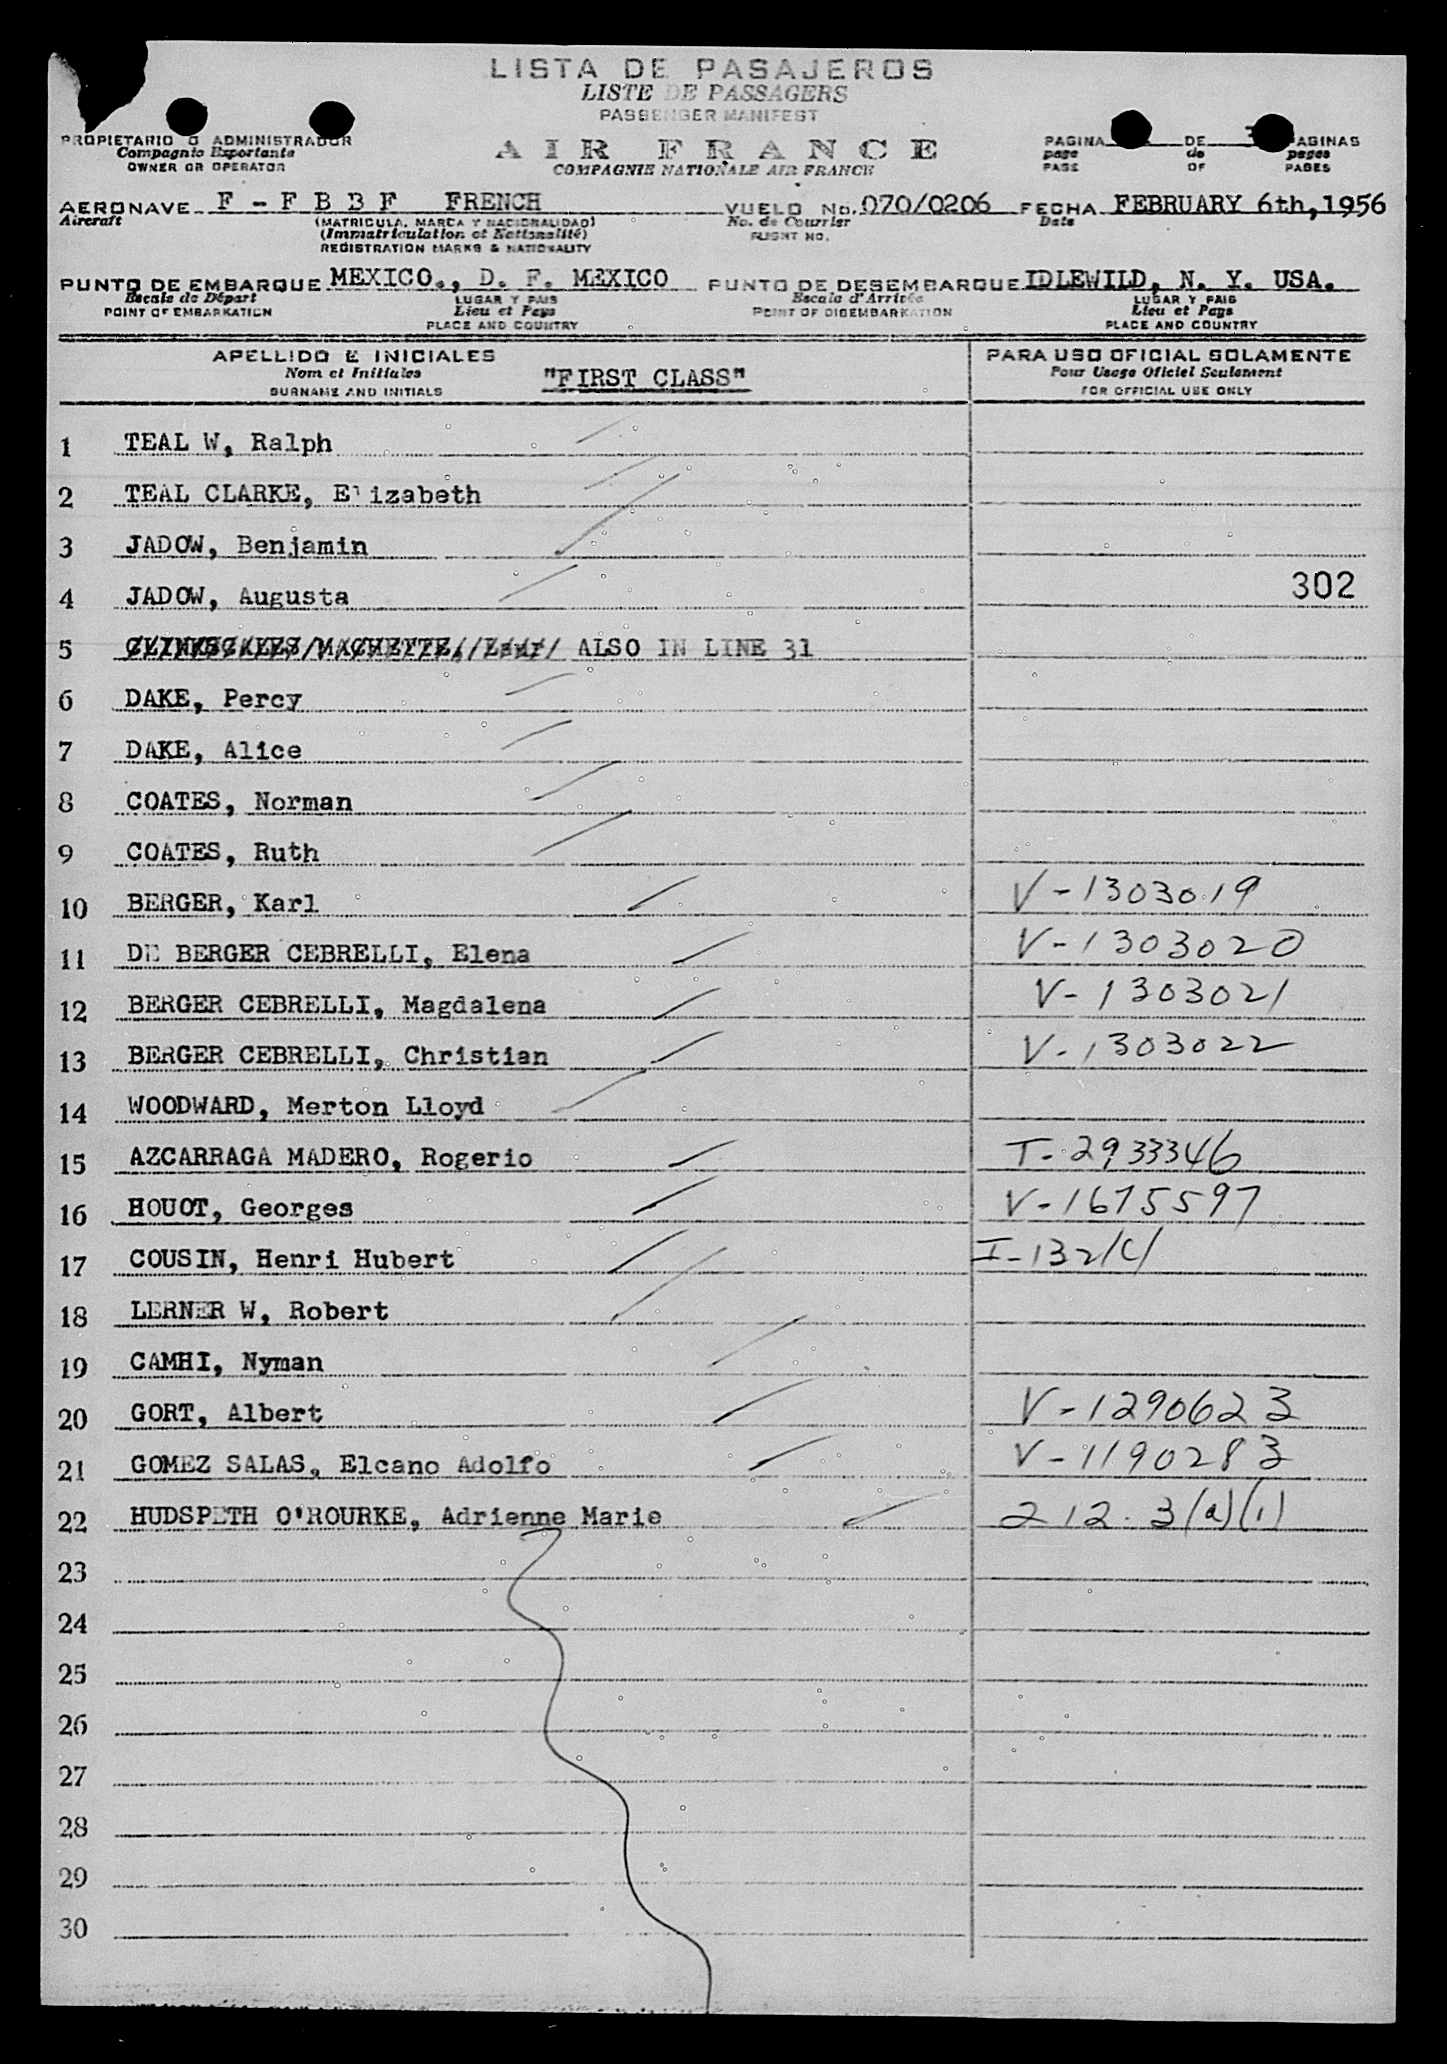 LISTA DE PASAJEROS
LISTE DE PASSAGERS
PASSENGER MANIFEST
PROPIETARIO O ADMINISTRADOR
Compagnie Exportante
OWNER OR OPERATOR
AIR FRANCE
COMPAGNIE NATIONALE AIR FRANCE
PAGINA DE PAGINAS
page de pages
PAGE OF PAGES
AERONAVE F - F B B F FRENCH VUELO No. 070/0206 FECHA FEBRUARY 6th, 1956
Aircraft (MATRICULA, MARCA Y NACIONALIDAD) No. de Courrier Date
(Immatriculation et Nationalité) FLIGHT NO.
REGISTRATION MARKS & NATIONALITY
PUNTO DE EMBARQUE MEXICO., D. F. MEXICO PUNTO DE DESEMBARQUE IDLEWILD, N. Y. USA.
Escale de Départ LUGAR Y PAIS Escale d'Arrivée LUGAR Y PAIS
POINT OF EMBARKATION Lieu et Pays POINT OF DISEMBARKATION Lieu et Pays
PLACE AND COUNTRY PLACE AND COUNTRY
APELLIDO E INICIALES PARA USO OFICIAL SOLAMENTE
Nom et Initiales "FIRST CLASS" Pour Usage Oficiel Seulement
SURNAME AND INITIALS FOR OFFICIAL USE ONLY
1 TEAL W, Ralph
2 TEAL CLARKE, Elizabeth
3 JADOW, Benjamin
4 JADOW, Augusta 302
5 ALSO IN LINE 31
6 DAKE, Percy
7 DAKE, Alice
8 COATES, Norman
9 COATES, Ruth
10 BERGER, Karl V-1303019
11 DE BERGER CEBRELLI, Elena V-1303020
12 BERGER CEBRELLI, Magdalena V-1303021
13 BERGER CEBRELLI, Christian V-1303022
14 WOODWARD, Merton Lloyd
15 AZCARRAGA MADERO, Rogerio T-2933346
16 HOUOT, Georges V-1675597
17 COUSIN, Henri Hubert I-132/C/
18 LERNER W, Robert
19 CAMHI, Nyman
20 GORT, Albert V-1290623
21 GOMEZ SALAS, Elcano Adolfo V-1190283
22 HUDSPETH O'ROURKE, Adrienne Marie 212.3(a)(1)
23
24
25
26
27
28
29
30